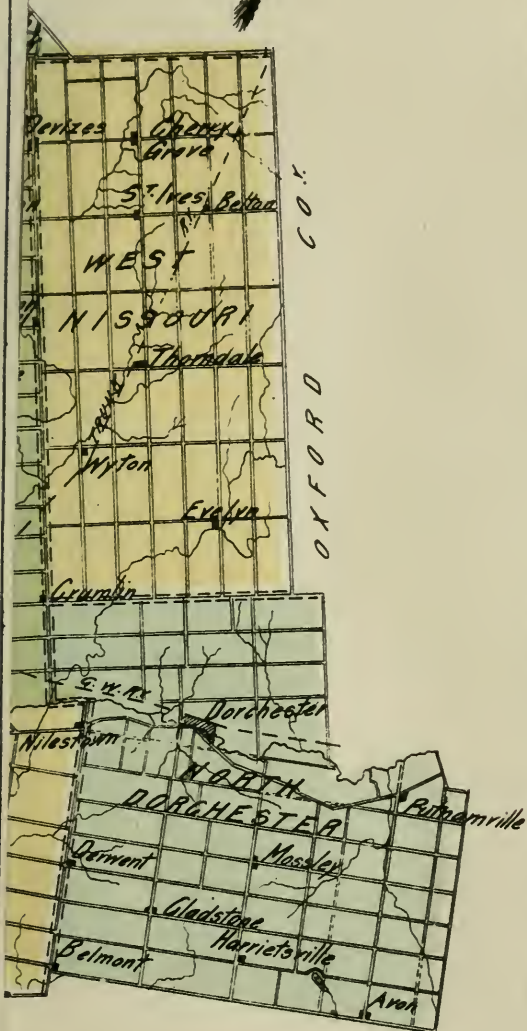 Devizes
Cherry
Grove
St. Ives
Belton
WEST
NISSOURI
Thorndale
Wyton
Evelyn
Crumlin
OXFORD CO'Y.
G.W.RY.
Dorchester
Nilestown
NORTH
DORCHESTER
Putnamville
Derwent
Mossley
Gladstone
Harrietsville
Belmont
Avon